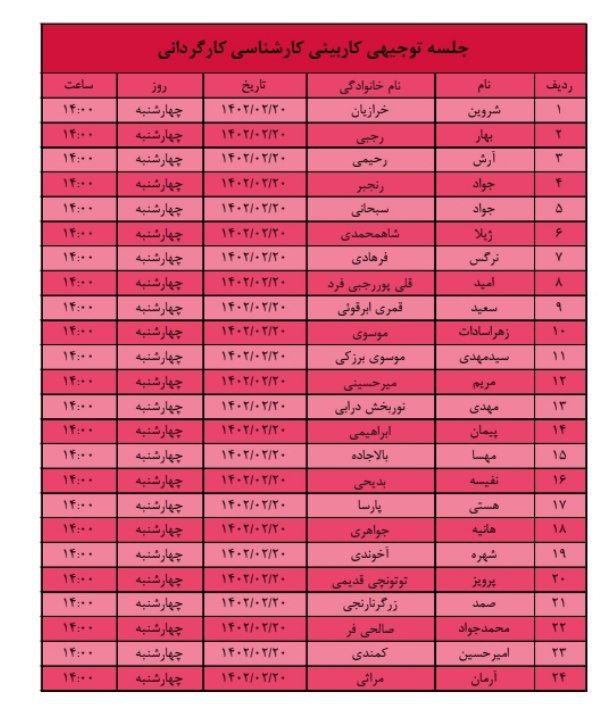 جلسه توجیهی کاربینی کارشناسی کارگردانی
ردیف نام نام خانوادگی تاریخ روز ساعت
۱ شروین خرازیان ۱۴۰۲/۰۲/۲۰ چهارشنبه ۱۴:۰۰
۲ بهار رجبی ۱۴۰۲/۰۲/۲۰ چهارشنبه ۱۴:۰۰
۳ آرش رحیمی ۱۴۰۲/۰۲/۲۰ چهارشنبه ۱۴:۰۰
۴ جواد رنجبر ۱۴۰۲/۰۲/۲۰ چهارشنبه ۱۴:۰۰
۵ جواد سبحانی ۱۴۰۲/۰۲/۲۰ چهارشنبه ۱۴:۰۰
۶ ژیلا شاهمحمدی ۱۴۰۲/۰۲/۲۰ چهارشنبه ۱۴:۰۰
۷ نرگس فرهادی ۱۴۰۲/۰۲/۲۰ چهارشنبه ۱۴:۰۰
۸ امید قلی پوررجبی فرد ۱۴۰۲/۰۲/۲۰ چهارشنبه ۱۴:۰۰
۹ سعید قمری ابرقوئی ۱۴۰۲/۰۲/۲۰ چهارشنبه ۱۴:۰۰
۱۰ زهراسادات موسوی ۱۴۰۲/۰۲/۲۰ چهارشنبه ۱۴:۰۰
۱۱ سیدمهدی موسوی برزکی ۱۴۰۲/۰۲/۲۰ چهارشنبه ۱۴:۰۰
۱۲ مریم میرحسینی ۱۴۰۲/۰۲/۲۰ چهارشنبه ۱۴:۰۰
۱۳ مهدی نوربخش درابی ۱۴۰۲/۰۲/۲۰ چهارشنبه ۱۴:۰۰
۱۴ پیمان ابراهیمی ۱۴۰۲/۰۲/۲۰ چهارشنبه ۱۴:۰۰
۱۵ مهسا بالاجاده ۱۴۰۲/۰۲/۲۰ چهارشنبه ۱۴:۰۰
۱۶ نفیسه بدیحی ۱۴۰۲/۰۲/۲۰ چهارشنبه ۱۴:۰۰
۱۷ هستی پارسا ۱۴۰۲/۰۲/۲۰ چهارشنبه ۱۴:۰۰
۱۸ هانیه جواهری ۱۴۰۲/۰۲/۲۰ چهارشنبه ۱۴:۰۰
۱۹ شهره آخوندی ۱۴۰۲/۰۲/۲۰ چهارشنبه ۱۴:۰۰
۲۰ پرویز توتونچی قدیمی ۱۴۰۲/۰۲/۲۰ چهارشنبه ۱۴:۰۰
۲۱ صمد زرگرتارنجی ۱۴۰۲/۰۲/۲۰ چهارشنبه ۱۴:۰۰
۲۲ محمدجواد صالحی فر ۱۴۰۲/۰۲/۲۰ چهارشنبه ۱۴:۰۰
۲۳ امیرحسین کمندی ۱۴۰۲/۰۲/۲۰ چهارشنبه ۱۴:۰۰
۲۴ آرمان مراثی ۱۴۰۲/۰۲/۲۰ چهارشنبه ۱۴:۰۰